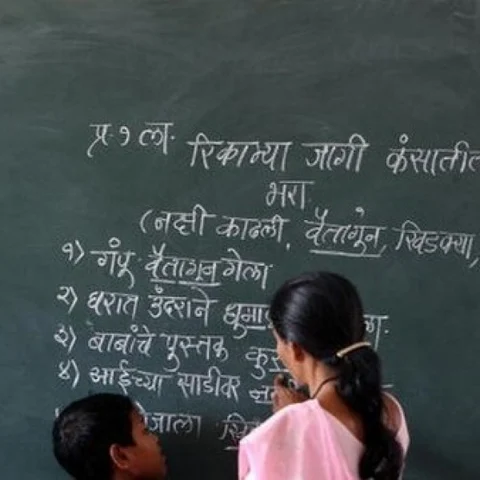 प्र. १ ला. रिकाम्या जागी कंसातील
भरा.
(नक्षी काढली, वैतागून, खिडक्या,
१) गंपू वैतागून गेला
२) घरात उंदराने
३) बाबांचे पुस्तक
४) आईच्या साडीवर